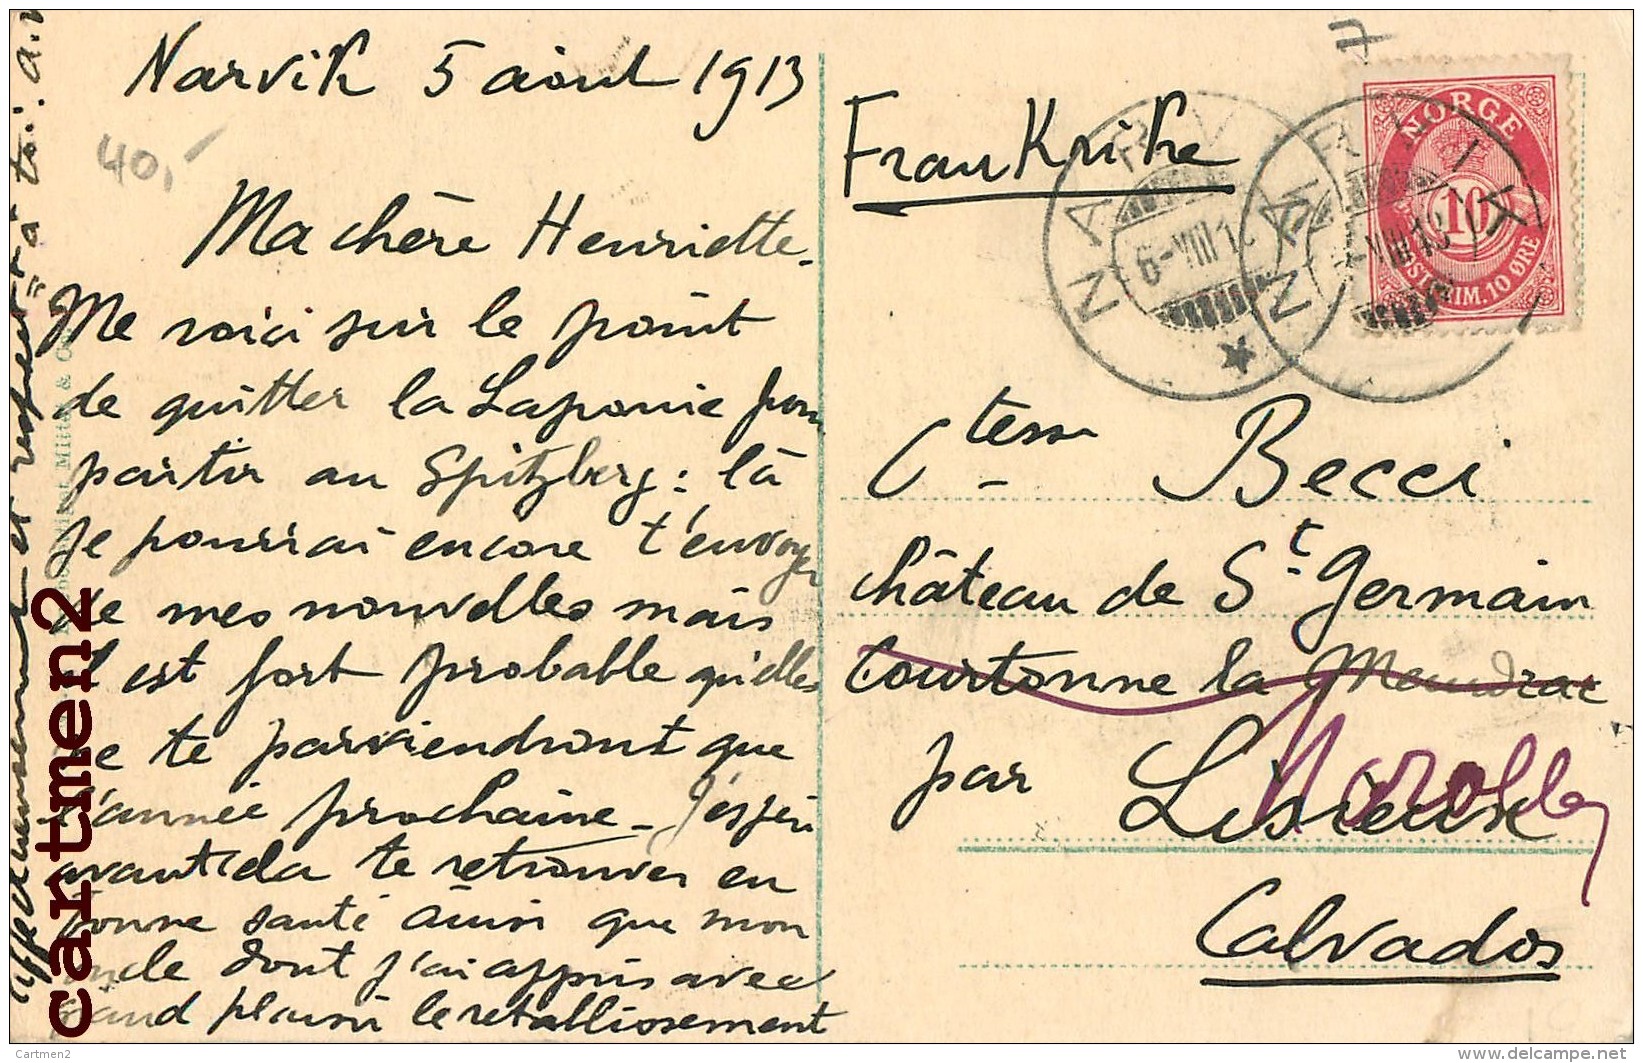 Narvik 5 aout 1913
40,-
Ma chère Henriette.
Me voici sur le point
de quitter la Laponie pour
partir au Spitzberg: là
je pourrai encore t'envoyer
de mes nouvelles mais
il est fort probable qu'elles
ne te parviendront que
l'année prochaine - J'espère
avant cela te retrouver en
bonne santé ainsi que mon
oncle dont j'ai appris avec
grand plaisir le retablissement
et respect
à toi
Mittet & Co
cartmen2
7
Frankrike
NORGE
10
POSTFRIM. 10 ØRE
NARVIK
6-VIII 13
NARVIK
-VIII 13
Ctesse Becci
château de St Germain
Courtonne la Meudrac
par Lisieux
Marolles
Calvados
Cartmen2
www.delcampe.net